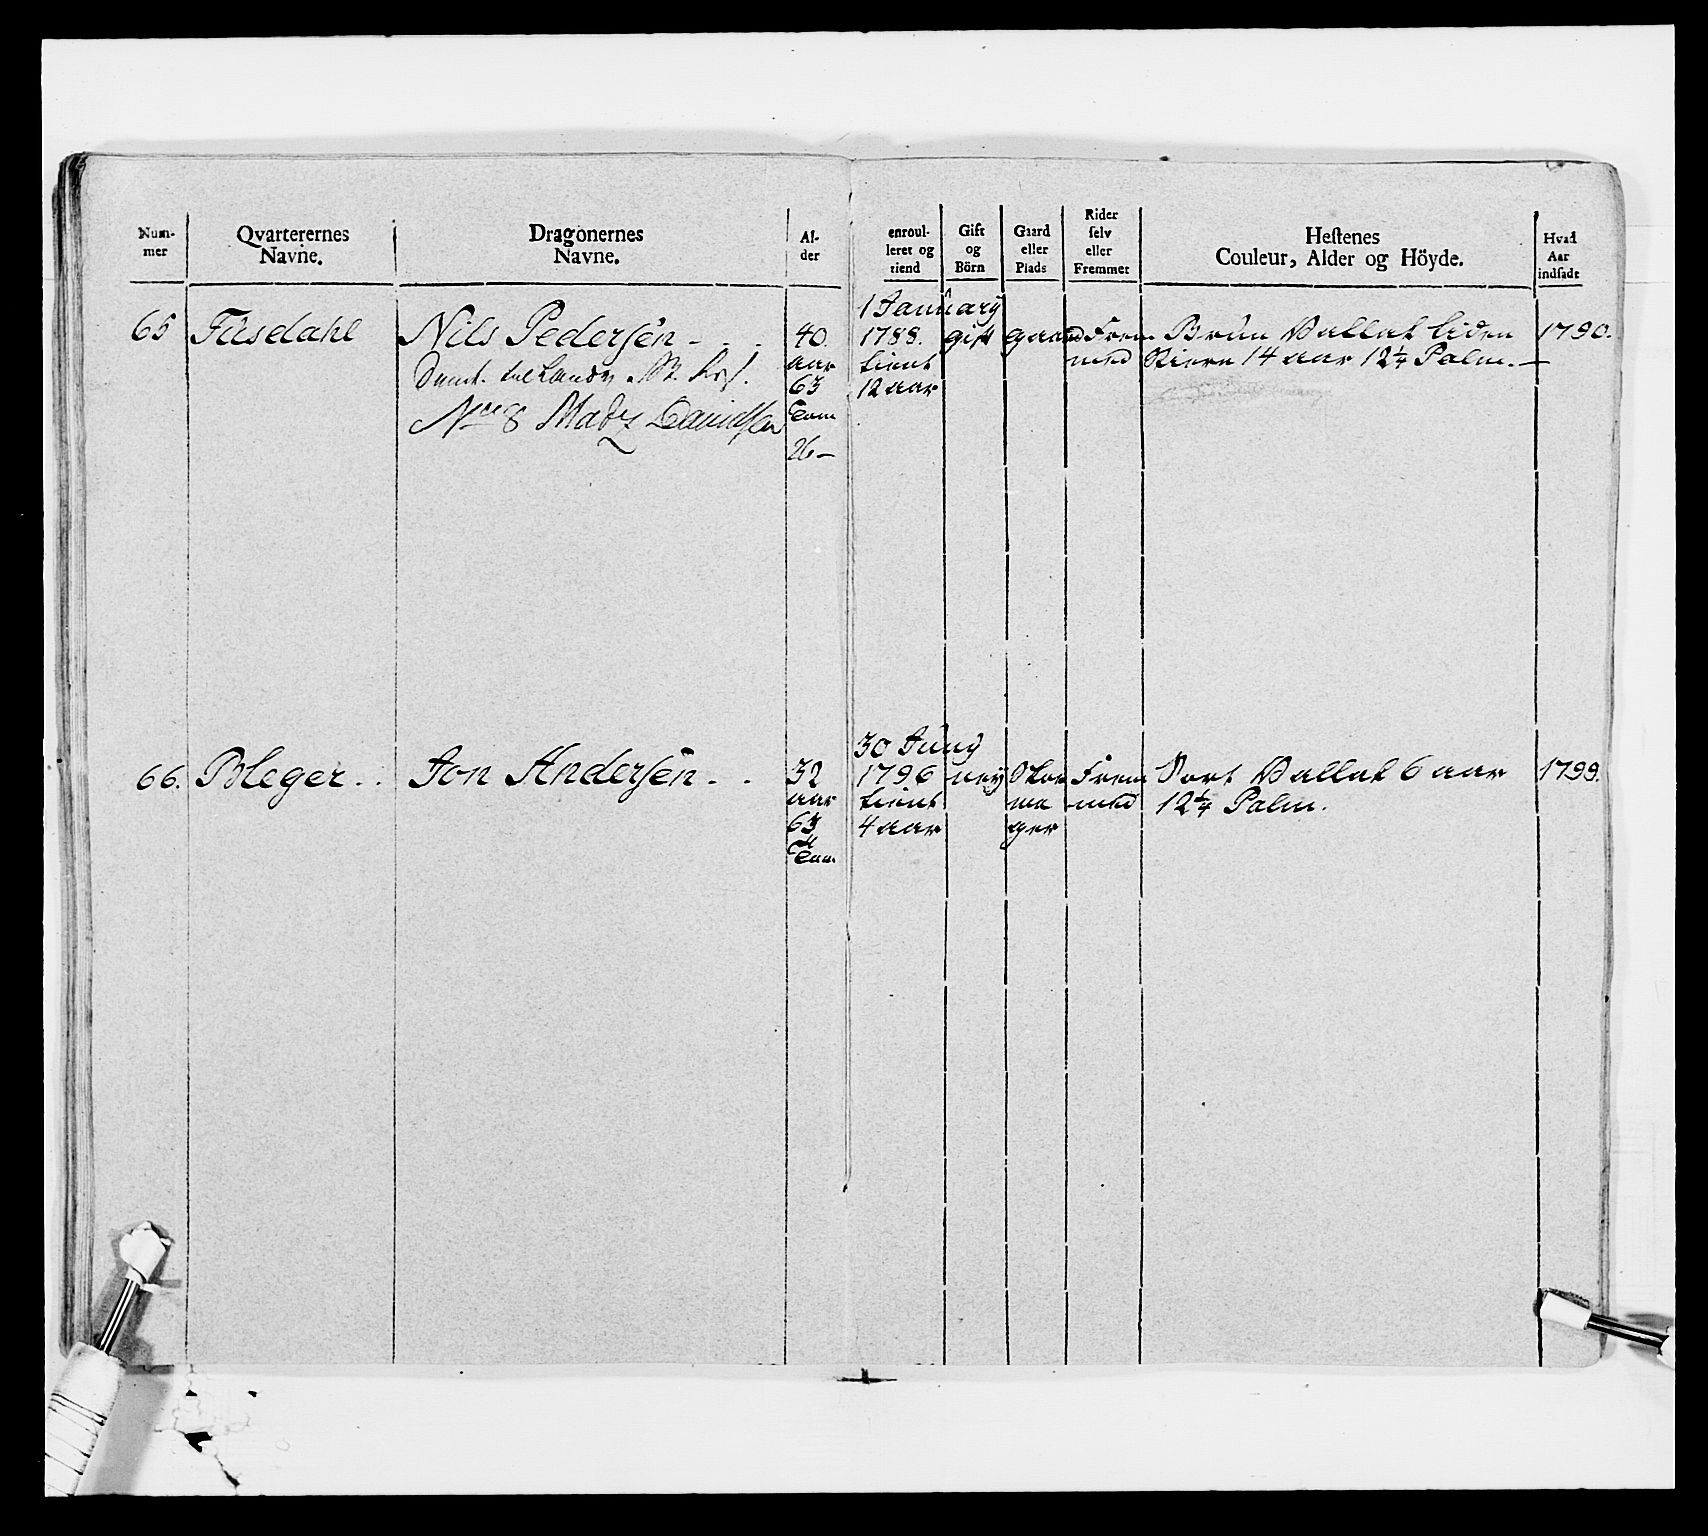 Num-
mer
Qvarterernes
Navne.
Dragonernes
Navne.
Al-
der
enroul-
leret og
tiend
Gift
og
Börn
Gaard
eller
Plads
Rider
selv
eller
Fremmet
Hestenes
Couleur, Alder og Höyde.
Hvad
Aar
indsadt
65 Fusdahl Nils Pedersen 40. aar 63 Tom 1 January 1788. tient 12 aar gift gaard Frem med Brun Vallak liden Stiern 14 aar 12¼ Palm. 1790.
No 8 Mads Davidsen 26
66. Bleger Jon Andersen 32 aar 63 Tom 30 Juny 1796 tient 4 aar ney Skoe ma ger Frem med Sort Vallak 6 aar 12¼ Palm. 1799.